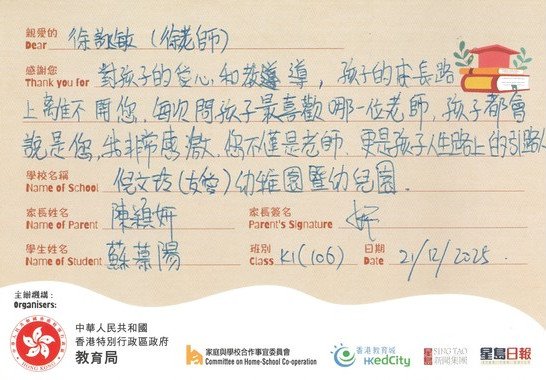 親愛的
Dear 徐凱敏 (徐老師)
感謝您
Thank you for 對孩子的愛心和教導, 孩子的成長路
上離不開您, 每次問孩子最喜歡哪一位老師, 孩子都會
說是您, 非常感激, 您不僅是老師 更是孩子人生路上的引路人
學校名稱
Name of School 倪文玲(友愛)幼稚園暨幼兒園.
家長姓名 家長簽名
Name of Parent 陳穎妍 Parent's Signature 妍
學生姓名 班別 日期
Name of Student 蘇 陽 Class K1(106) Date 21/12/2025.
主辦機構:
Organisers:
HONG KONG
中華人民共和國
香港特別行政區政府
教育局
家庭與學校合作事宜委員會
Committee on Home-School Co-operation
香港教育城
HKedCity
SING TAO
新聞集團
星島日報